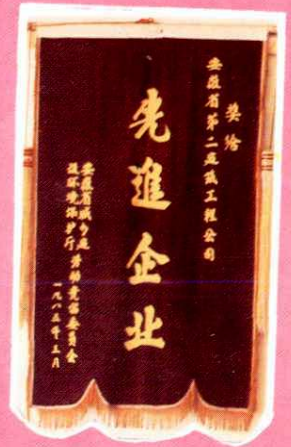 奖给
安徽省第二建筑工程公司
先进企业
安徽省城乡建
设环境保护厅 劳动竞赛委员会
一九八五年三月